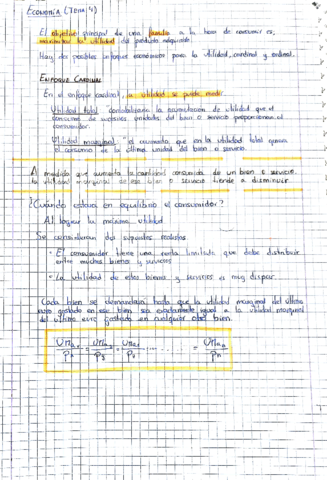 ECONOMÍA (TEMA 4)
El objetivo principal de una familia a la hora de consumir es
maximizar la utilidad del producto adquirido.
Hay dos posibles enfoques económicos para la utilidad, cardinal y ordinal.
ENFOQUE CARDINAL
En el enfoque cardinal, la utilidad se puede medir.
Utilidad total "contabilizaría la acumulación de utilidad que el
consumo de sucesivas unidades del bien o servicio proporciona al
consumidor.
Utilidad marginal "el aumento que en la utilidad total genera
el consumo de la última unidad del bien o servicio.
A medida que aumenta la cantidad consumida de un bien o servicio,
la utilidad marginal de ese bien o servicio tiende a disminuir.
¿Cuándo estará en equilibrio el consumidor?
Al lograr su máxima utilidad
Se consideran dos supuestos realistas
• El consumidor tiene una renta limitada que debe distribuir
entre muchos bienes y servicios
• La utilidad de estos bienes y servicios es muy dispar.
Cada bien se demandará hasta que la utilidad marginal del último
euro gastado en ese bien sea exactamente igual a la utilidad marginal
del último euro gastado en cualquier otro bien.